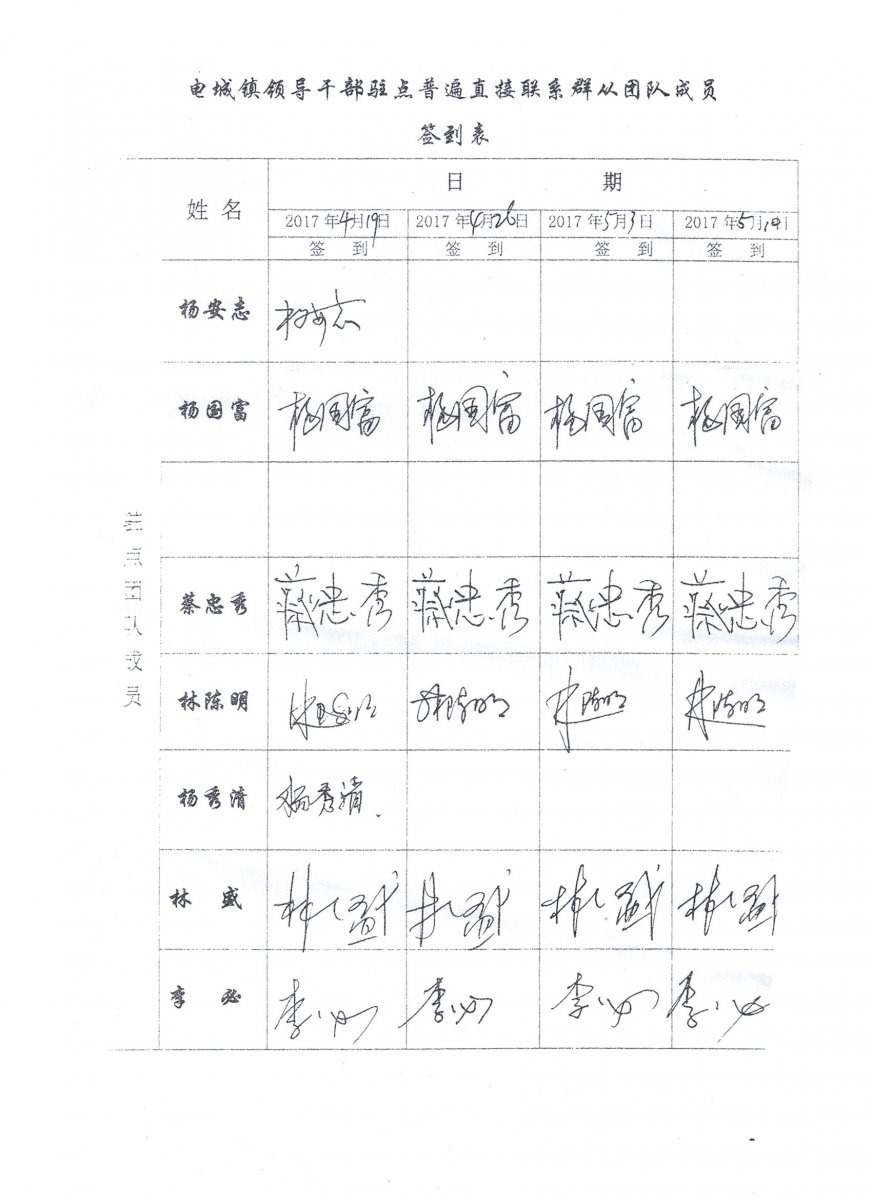 电城镇领导干部驻点普遍直接联系群从团队成员
签到表
姓名 日期
2017年4月19日 2017年4月26日 2017年5月3日 2017年5月10日
签到 签到 签到 签到
驻点团队成员
杨安志 杨安志
杨国富 杨国富 杨国富 杨国富 杨国富
蔡忠秀 蔡忠秀 蔡忠秀 蔡忠秀 蔡忠秀
林陈明 林陈明 林陈明 林陈明 林陈明
杨秀清 杨秀清.
林盛 林盛 林盛 林盛 林盛
李必 李必 李必 李必 李必